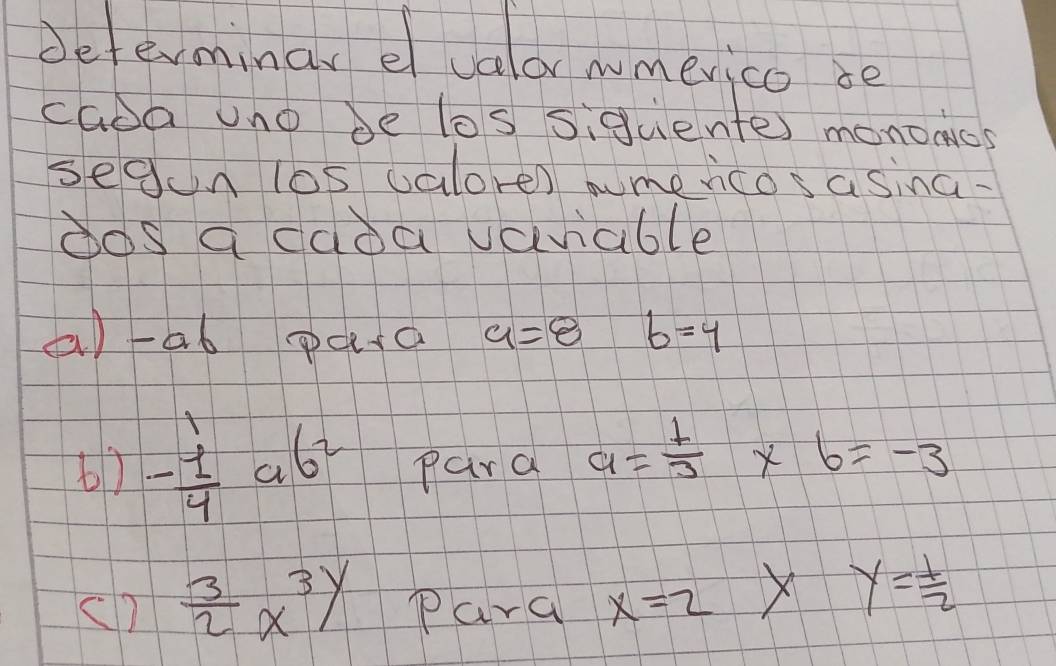 determinar el valor numerico de
cada uno de los siguientes monomios
segun los valores numericos asina-
dos a cada variable
a) -ab para a=8 b=4
b) -1/4 ab² para a=1/3 y b=-3
c) 3/2 x³y para x=2 y y=1/2